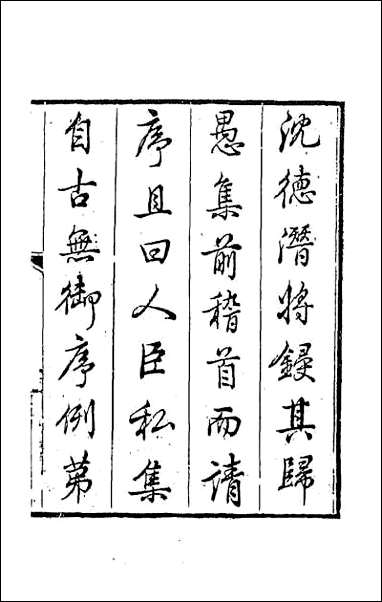 沈德潛將鋟其歸
愚集前稽首而請
序且曰人臣私集
自古無御序例第